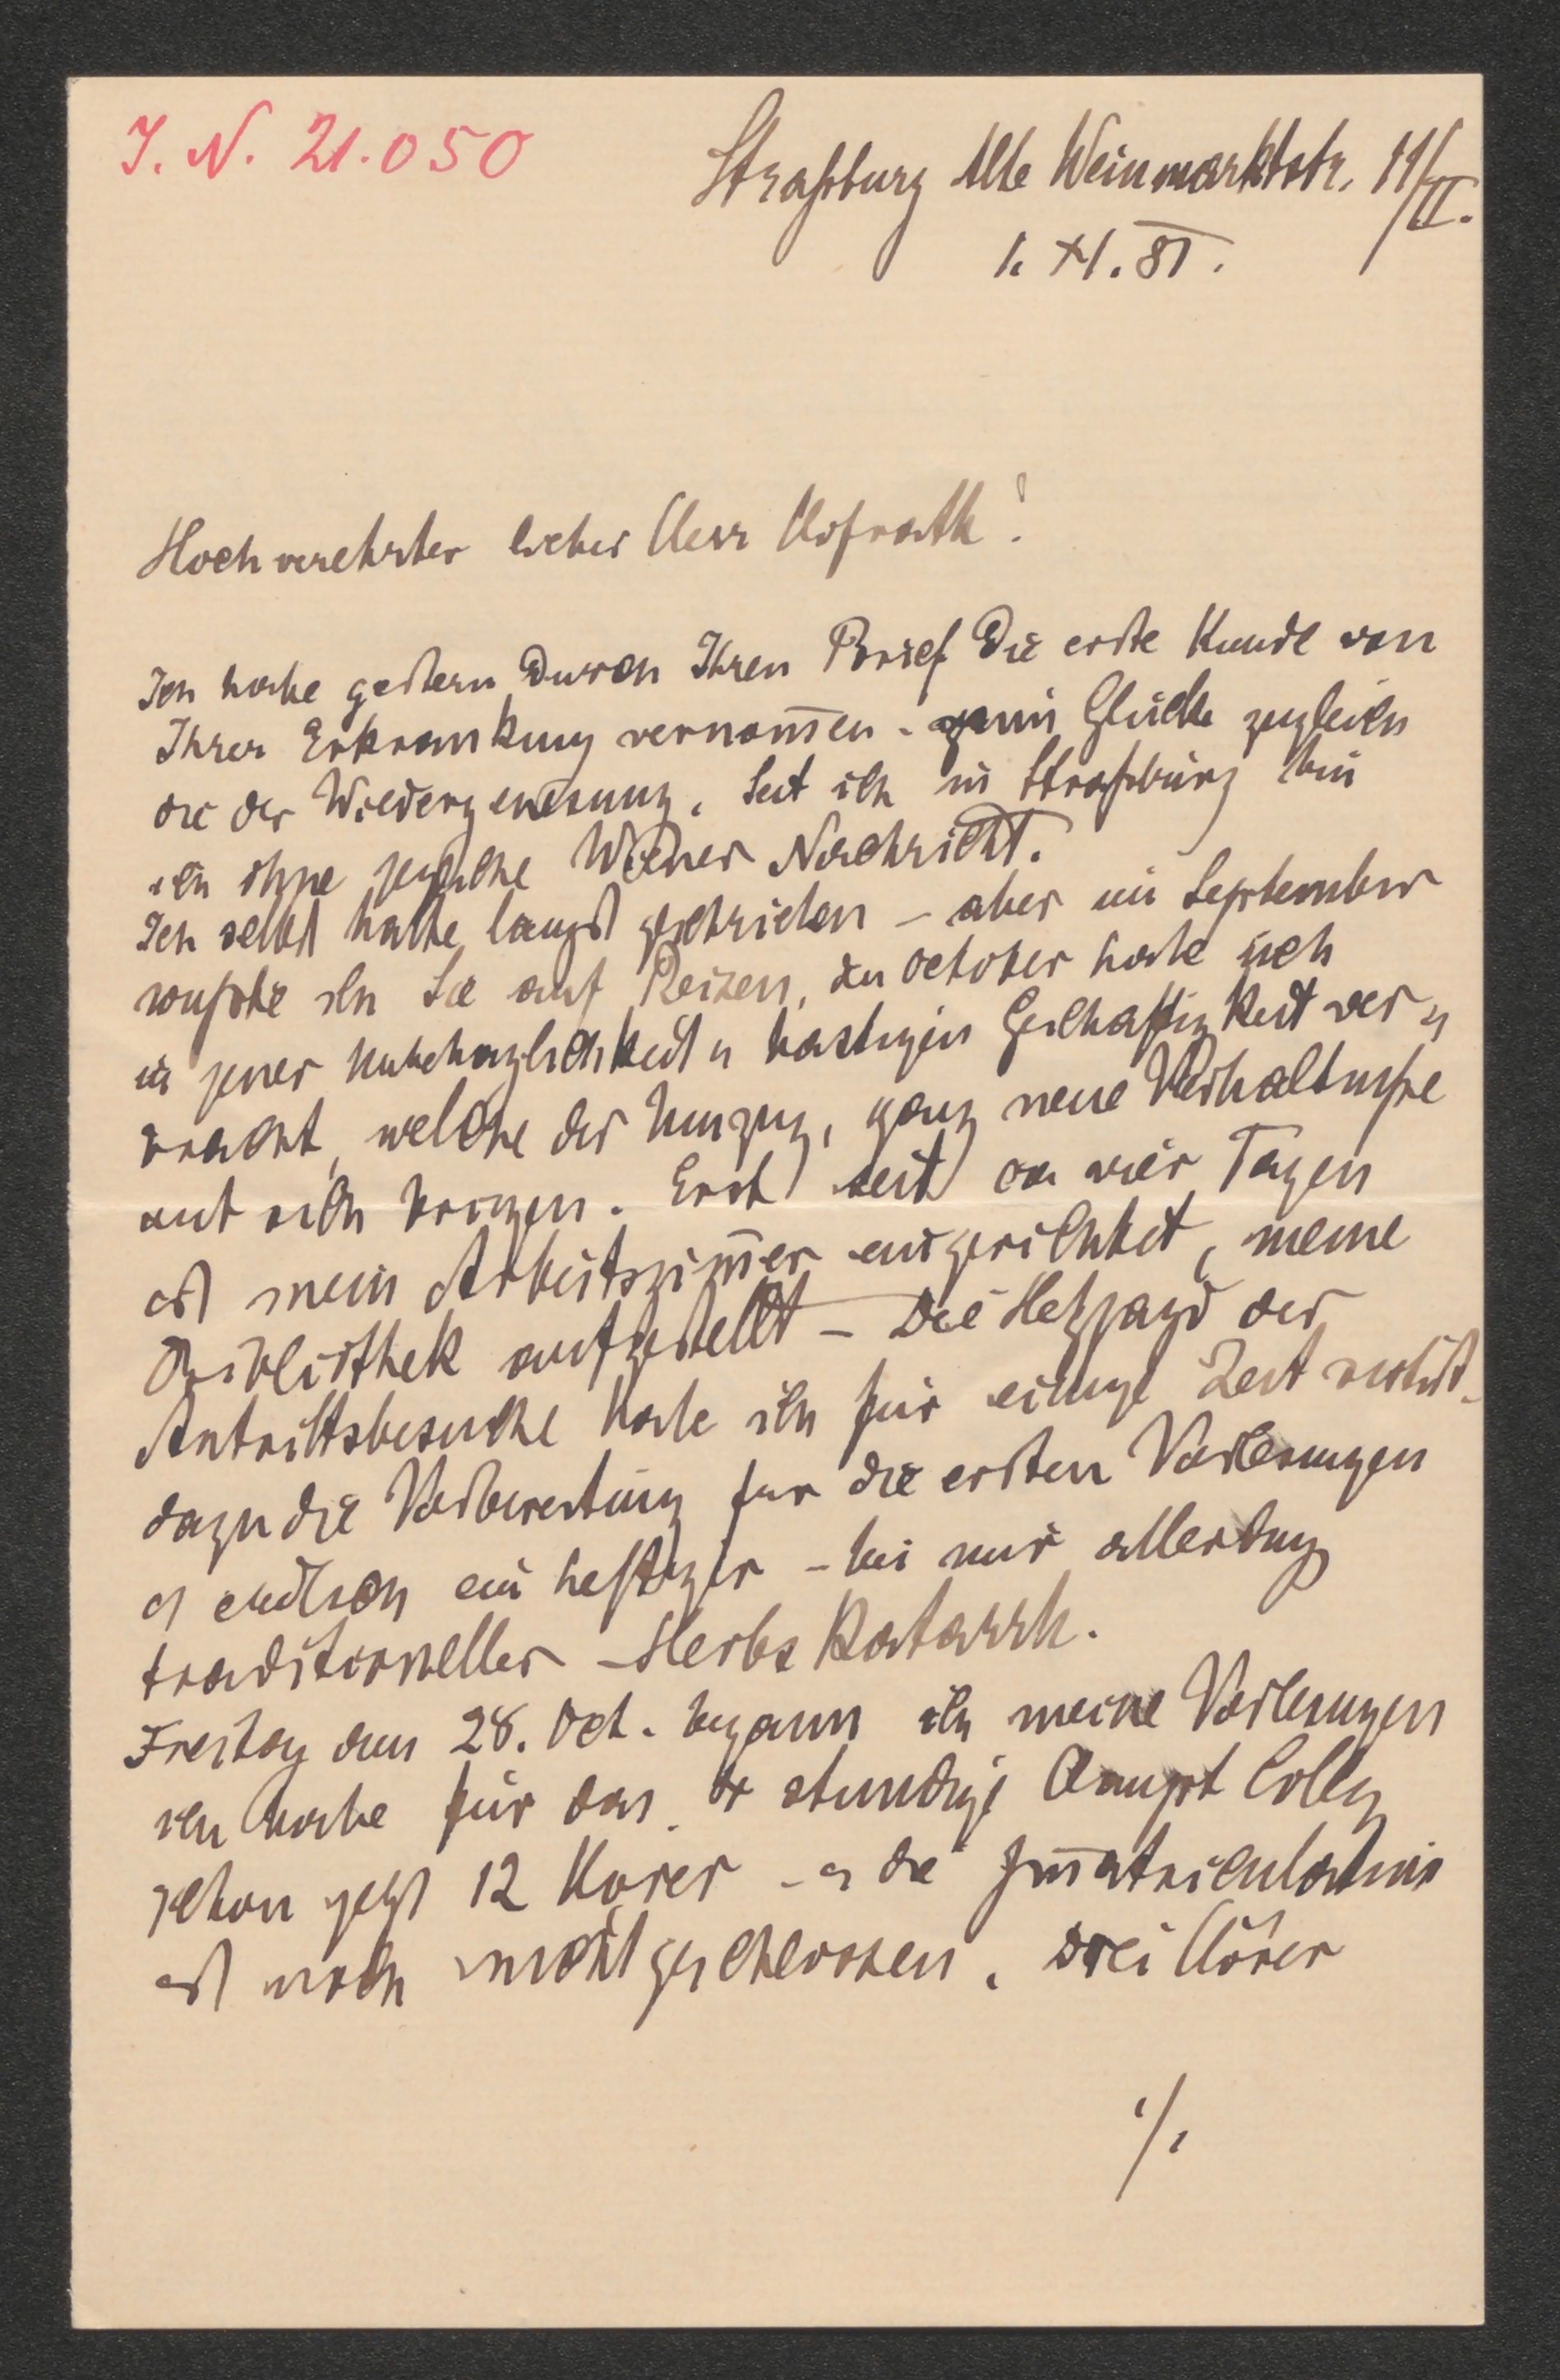 I. N. 21.050
Straßburg Alte Weinmarktstr. 11/II.
1. XI. 81.
Hochverehrter lieber Herr Hofrath!
Ich habe gestern durch Ihren Brief die erste Kunde von
Ihrer Erkrankung vernom̄en - zum Glücke zugleich
die der Wiedergenesung. Seit ich in Straßburg bin
ich ohne jegliche Wiener Nachricht.
Ich selbst hätte längst geschrieben - aber im September
wußte ich Sie auf Reisen, den October habe ich
in jener Unbehaglichkeit u hastigen Geschäftigkeit ver-
bracht, welche der Umzug, ganz neue Verhältniße
mit sich bringen. Erst seit ca vier Tagen
ist mein Arbeitszim̄er eingerichtet, meine
Bibliothek aufgestellt - die Hetzjagd der
Antrittsbesuche habe ich für einige Zeit
dazu die Vorbereitung für die ersten Vorlesungen
u endlich ein heftiger - bei mir allerdings
traditioneller - Herbst Katarrh.
Freitag den 28. Oct. begann ich meine Vorlesungen
ich habe für das 4 stündige Haupt Colleg
schon jetzt 12 Hörer - u die Im̄atriculation
ist noch nicht geschlossen. Drei Hörer
./.